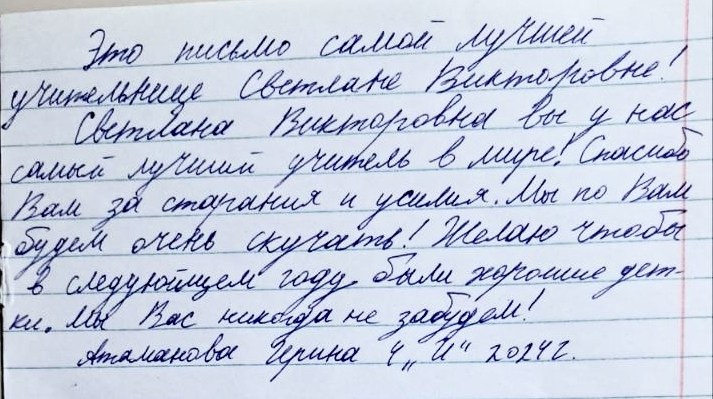 Это письмо самой лучшей
учительнице Светлане Викторовне!
Светлана Викторовна вы у нас
самый лучший учитель в мире! Спасибо
Вам за старания и усилия. Мы по Вам
будем очень скучать! Желаю чтобы
в следующем году были хорошие дет-
ки. Мы Вас никогда не забудем!
Атаманова 4 „И“ 2024 г.